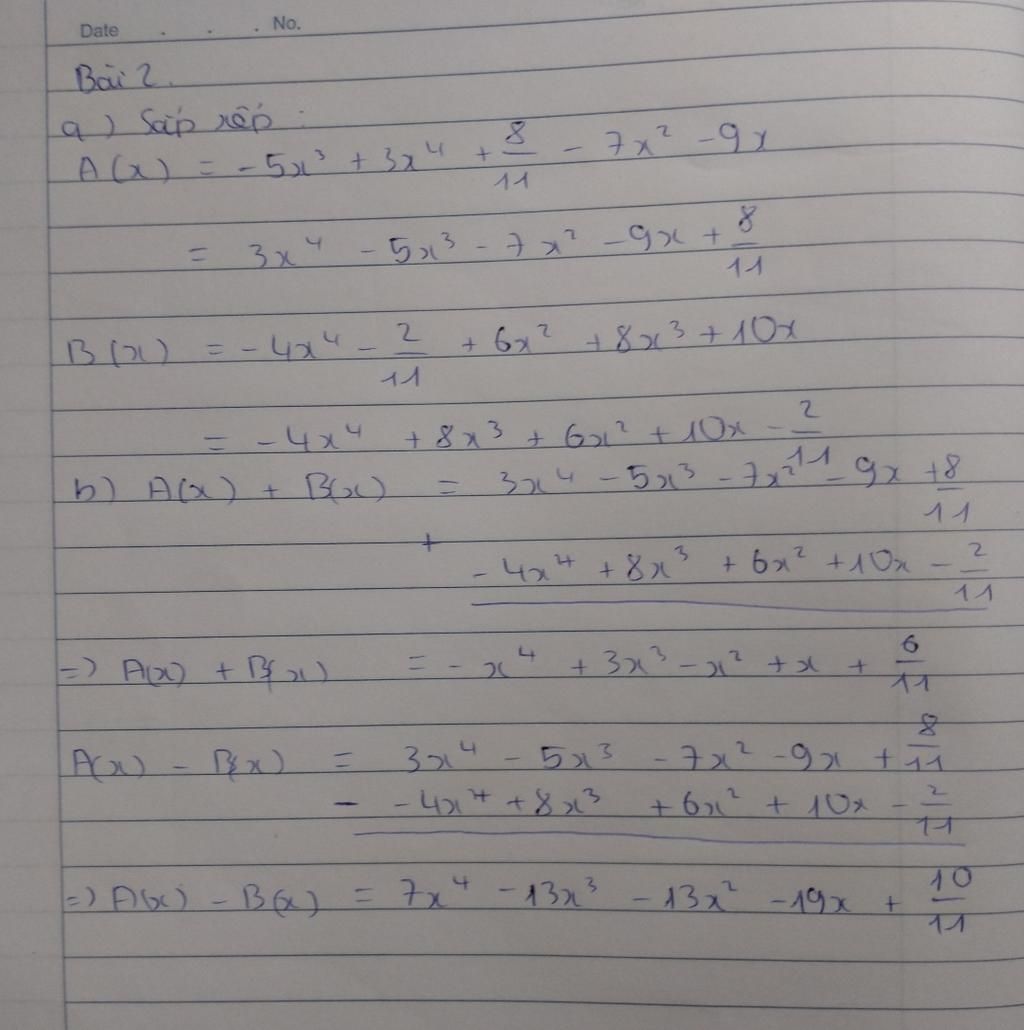 Date . . . No.
Bài 2.
a) Sắp xếp :
A(x) = -5x³ + 3x⁴ + 8/11 - 7x² - 9x
= 3x⁴ - 5x³ - 7x² - 9x + 8/11
B(x) = -4x⁴ - 2/11 + 6x² + 8x³ + 10x
= -4x⁴ + 8x³ + 6x² + 10x - 2/11
b) A(x) + B(x) = 3x⁴ - 5x³ - 7x² - 9x + 8/11
+
-4x⁴ + 8x³ + 6x² + 10x - 2/11
=> A(x) + B(x) = -x⁴ + 3x³ - x² + x + 6/11
A(x) - B(x) = 3x⁴ - 5x³ - 7x² - 9x + 8/11
- -4x⁴ + 8x³ + 6x² + 10x - 2/11
=> A(x) - B(x) = 7x⁴ - 13x³ - 13x² - 19x + 10/11